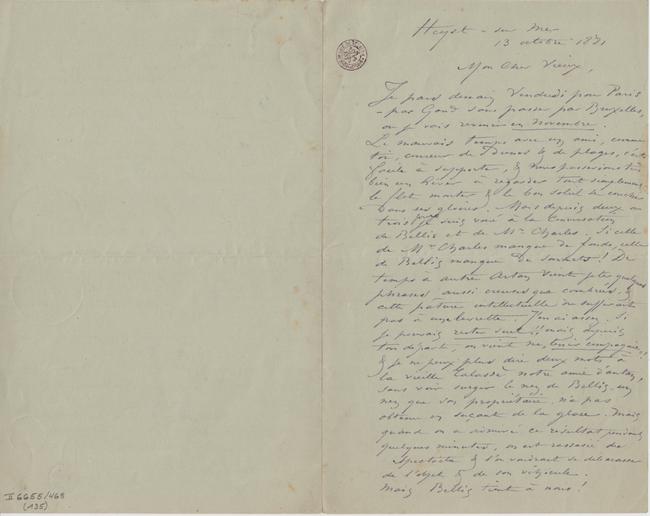 Heyst-sur Mer
13 octobre 1881
Mon Cher Vieux,
Je pars demain Vendredi pour Paris
- par Gand sans passer par Bruxelles,
où je vais revenir en Novembre.
Le mauvais temps avec un ami, comme
toi, coureur de Dunes & de plages, c'est
facile à supporter, & nous passerions très
bien un hiver à regarder tout simplement
le flot monter & le bon soleil se coucher
dans ses gloires. Mais depuis deux ou
trois jours je suis voué à la conversation
de Bellis et de Mr Charles. Si celle
de Mr Charles manque de fonds, celle
de Bellis manque de
temps à autre Artan vient jeter quelques
phrases aussi creuses que &
cette pature intellectuelle ne suffirait
pas à une levrette. J'en ai assez. Si
je pouvais rester seul!! mais depuis
ton départ, on vient me tenir compagnie!!
& je ne peux plus dire deux mots à
la vieille notre amie d'antan,
sans voir surgir le nez de Bellis, un
nez que son propriétaire n'a pas
obtenu en suçant de la glace. Mais
quand on a ce résultat pendant
quelques minutes, on est rassasié de
& l'on voudrait se débarasser
de l'objet & de son véhicule.
Mais Bellis tient à nous!
II 6655/468
(135)